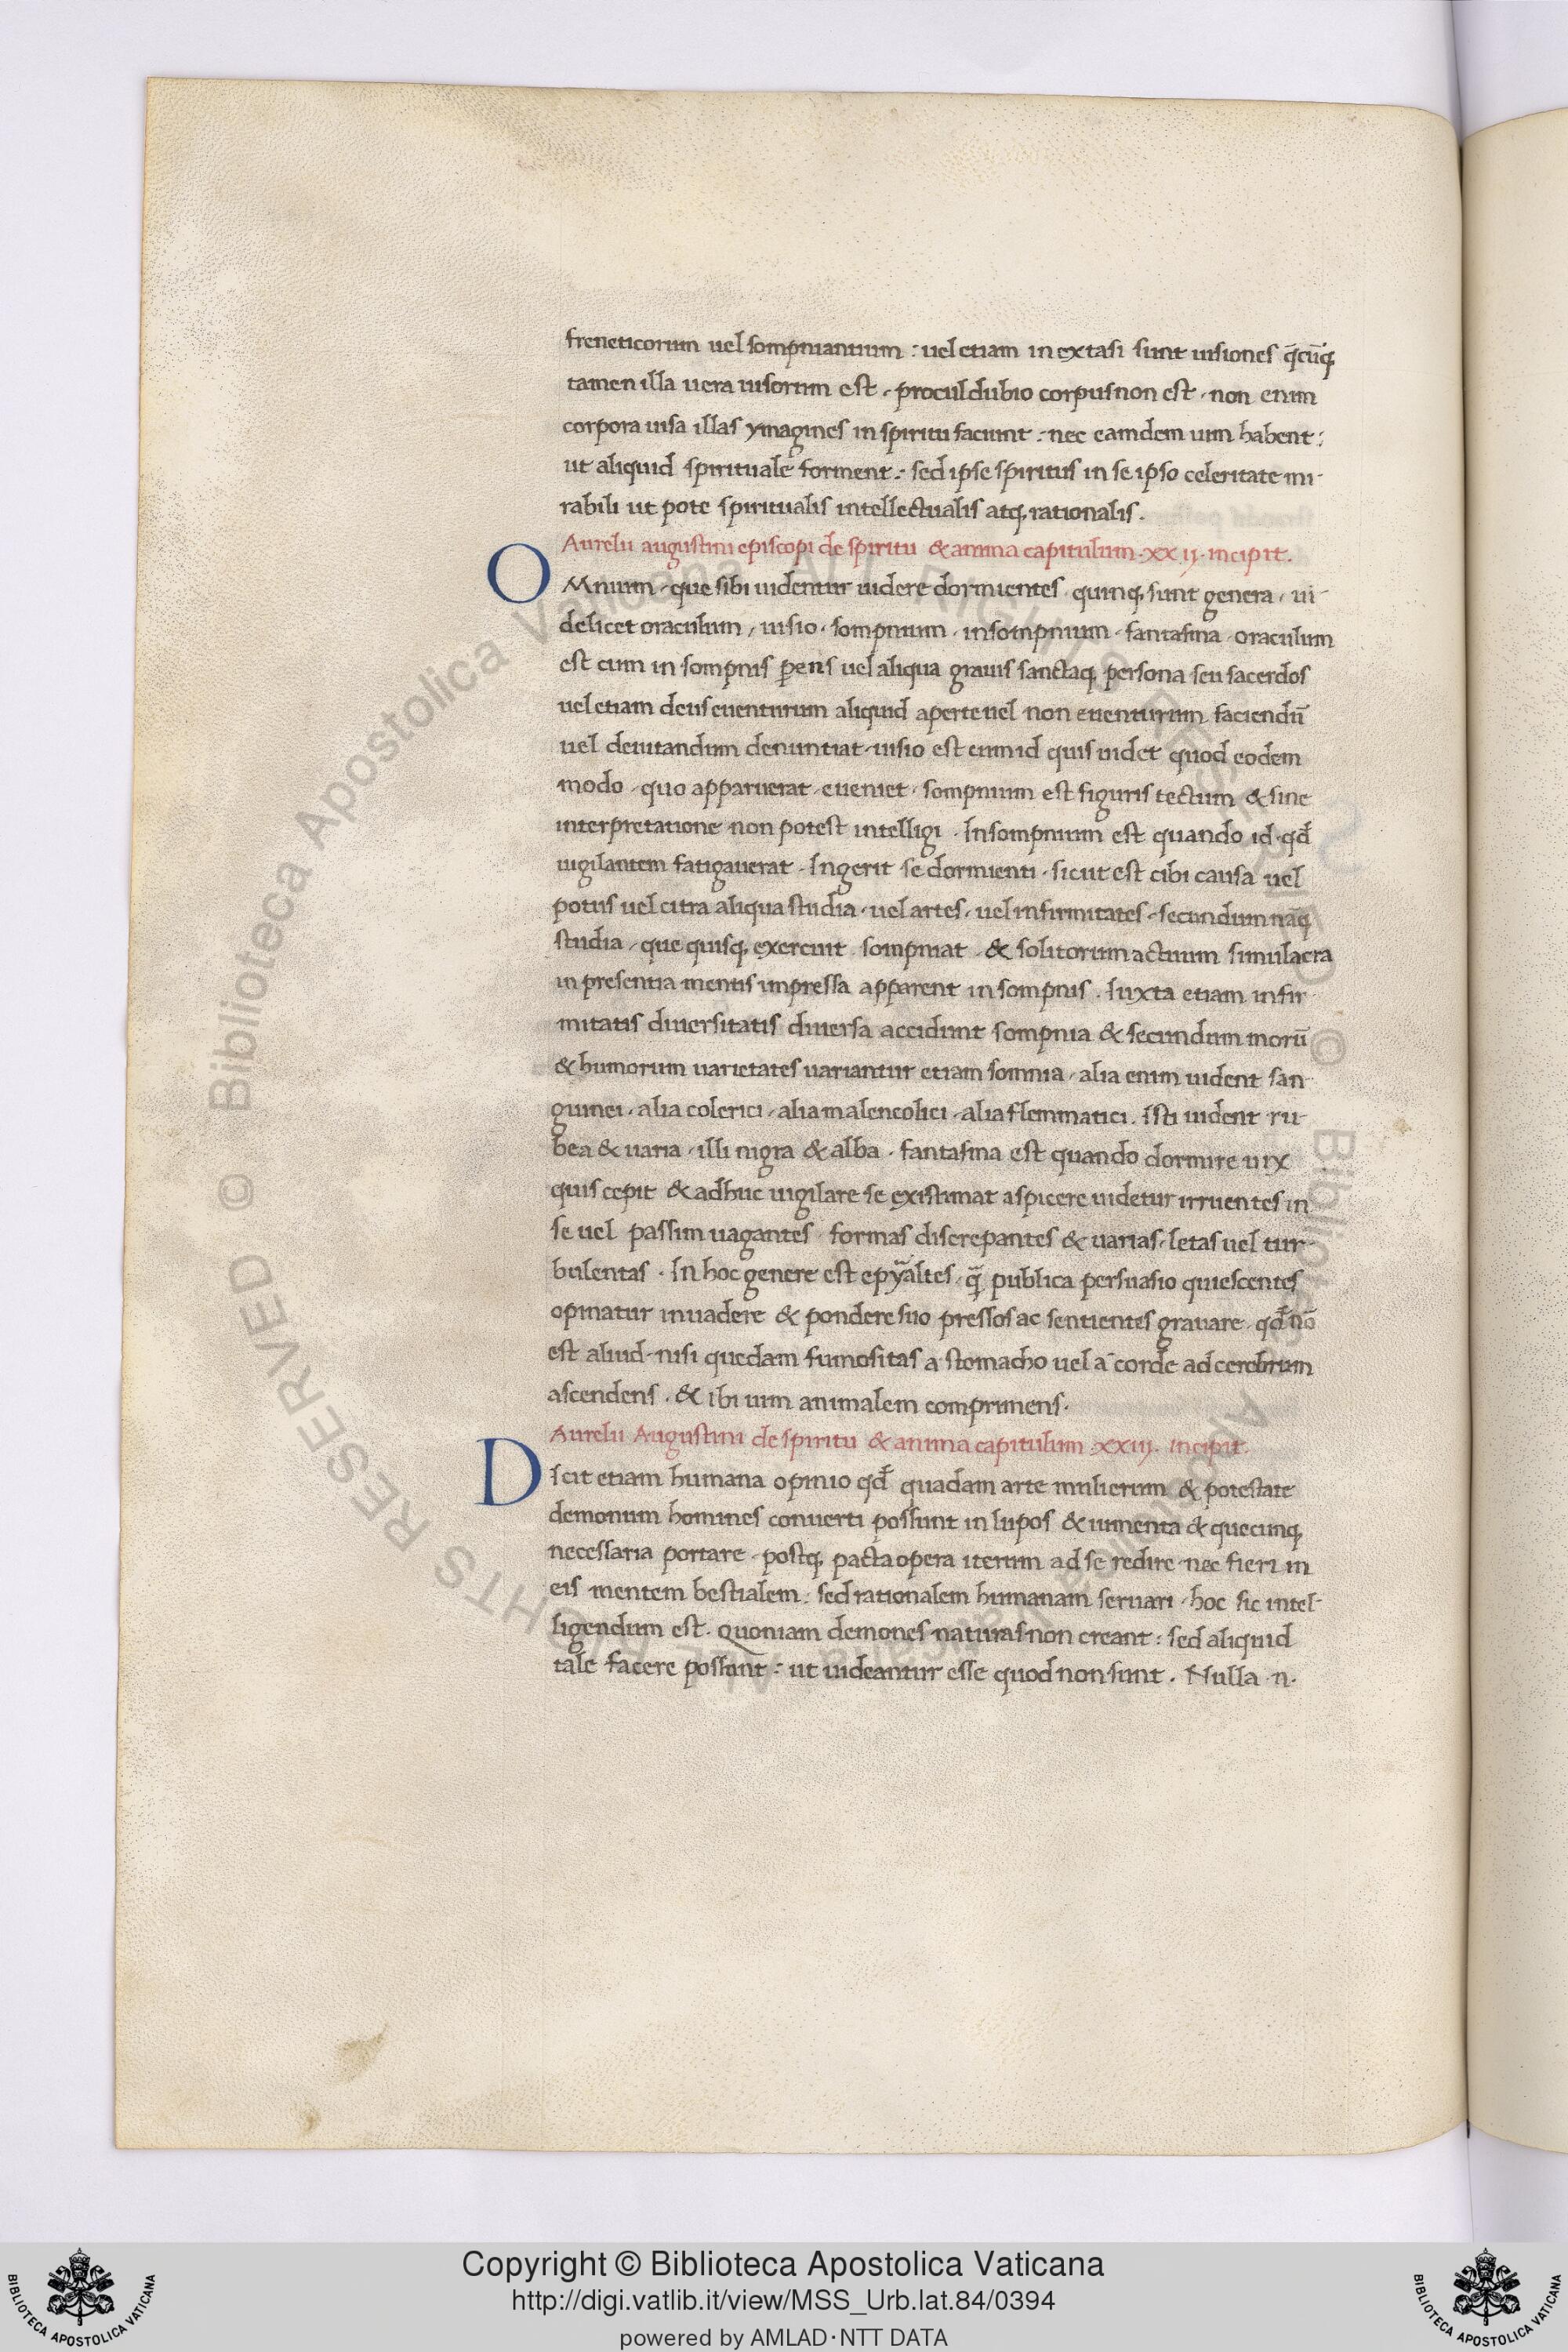 freneticorum uel sompniantium : uel etiam in extasi sunt uisiones q̄cūq;
tamen illa uera uisorum est · procul dubio corpus non est · non enim
corpora uisa illas ymagines in spiritu faciunt : nec eamdem uim habent :
ut aliquid spirituale forment : sed ipse spiritus in se ipso celeritate mi-
rabili ut pote spiritualis intellectualis atq; rationalis .
Aurelii augustini episcopi de spiritu & anima capitulum · xx ij · incipit .
O Mnium · que sibi uidentur uidere dormientes · quinq; sunt genera · ui-
delicet oraculum , uisio · sompnium · insompnium · fantasma · oraculum
est cum in sompnis ꝑens uel aliqua grauis sanctaq; persona seu sacerdos
uel etiam deus euenturum aliquid aperte uel non euenturum faciendū
uel deuitandum denuntiat · uisio est cum id quis uidet quod eodem
modo · quo apparuerat · eueniet · sompnium est figuris tectum & sine
interpretatione non potest intelligi . Insompnium est quando id · qd̄
uigilantem fatigauerat · Ingerit se dormienti · sicut est cibi causa uel
potus uel citra aliqua studia · uel artes · uel infirmitates · secundum nāq;
studia · que quisq; exercuit sompniat · & solitorum actuum simulacra
in presentia mentis impressa apparent in sompnis . Iuxta etiam infir-
mitatis diuersitatis diuersa accidunt sompnia & secundum morū
& humorum uarietates uariantur etiam somnia · alia enim uident san-
guinei · alia colerici · alia malencolici · alia flemmatici . Isti uident ru-
bea & uaria · illi nigra & alba · fantasma est quando dormire uix
quis cepit & adhuc uigilare se existimat aspicere uidetur irruentes in
se uel passim uagantes formas discrepantes & uarias · letas uel tur-
bulentas · In hoc genere est epyaltes · q̄ publica persuasio quiescentes
opinatur inuadere & pondere suo pressos ac sentientes grauare · qd̄ nō
est aliud · nisi quedam fumositas a stomacho uel a corde ad cerebrum
ascendens · & ibi uim animalem comprimens ·
Aurelii Augustini de spiritu & anima capitulum · xxiij · incipit ·
D icit etiam humana opinio qd̄ quadam arte mulierum & potestate
demonum homines conuerti possunt in lupos & iumenta & quecunq;
necessaria portare · postq; pacta opera iterum ad se redire · nec fieri in
eis mentem bestialem : sed rationalem humanam seruari · hoc sic intel-
ligendum est · Quoniam demones naturas non creant : sed aliquid
tale facere possunt : ut uideantur esse quod non sunt . Nulla · n ·
Copyright © Biblioteca Apostolica Vaticana
http://digi.vatlib.it/view/MSS_Urb.lat.84/0394
powered by AMLAD·NTT DATA
BIBLIOTECA APOSTOLICA VATICANA
BIBLIOTECA APOSTOLICA VATICANA
© Biblioteca Apostolica Vaticana ALL RIGHTS RESERVED © Biblioteca Apostolica Vaticana ALL RIGHTS RESERVED